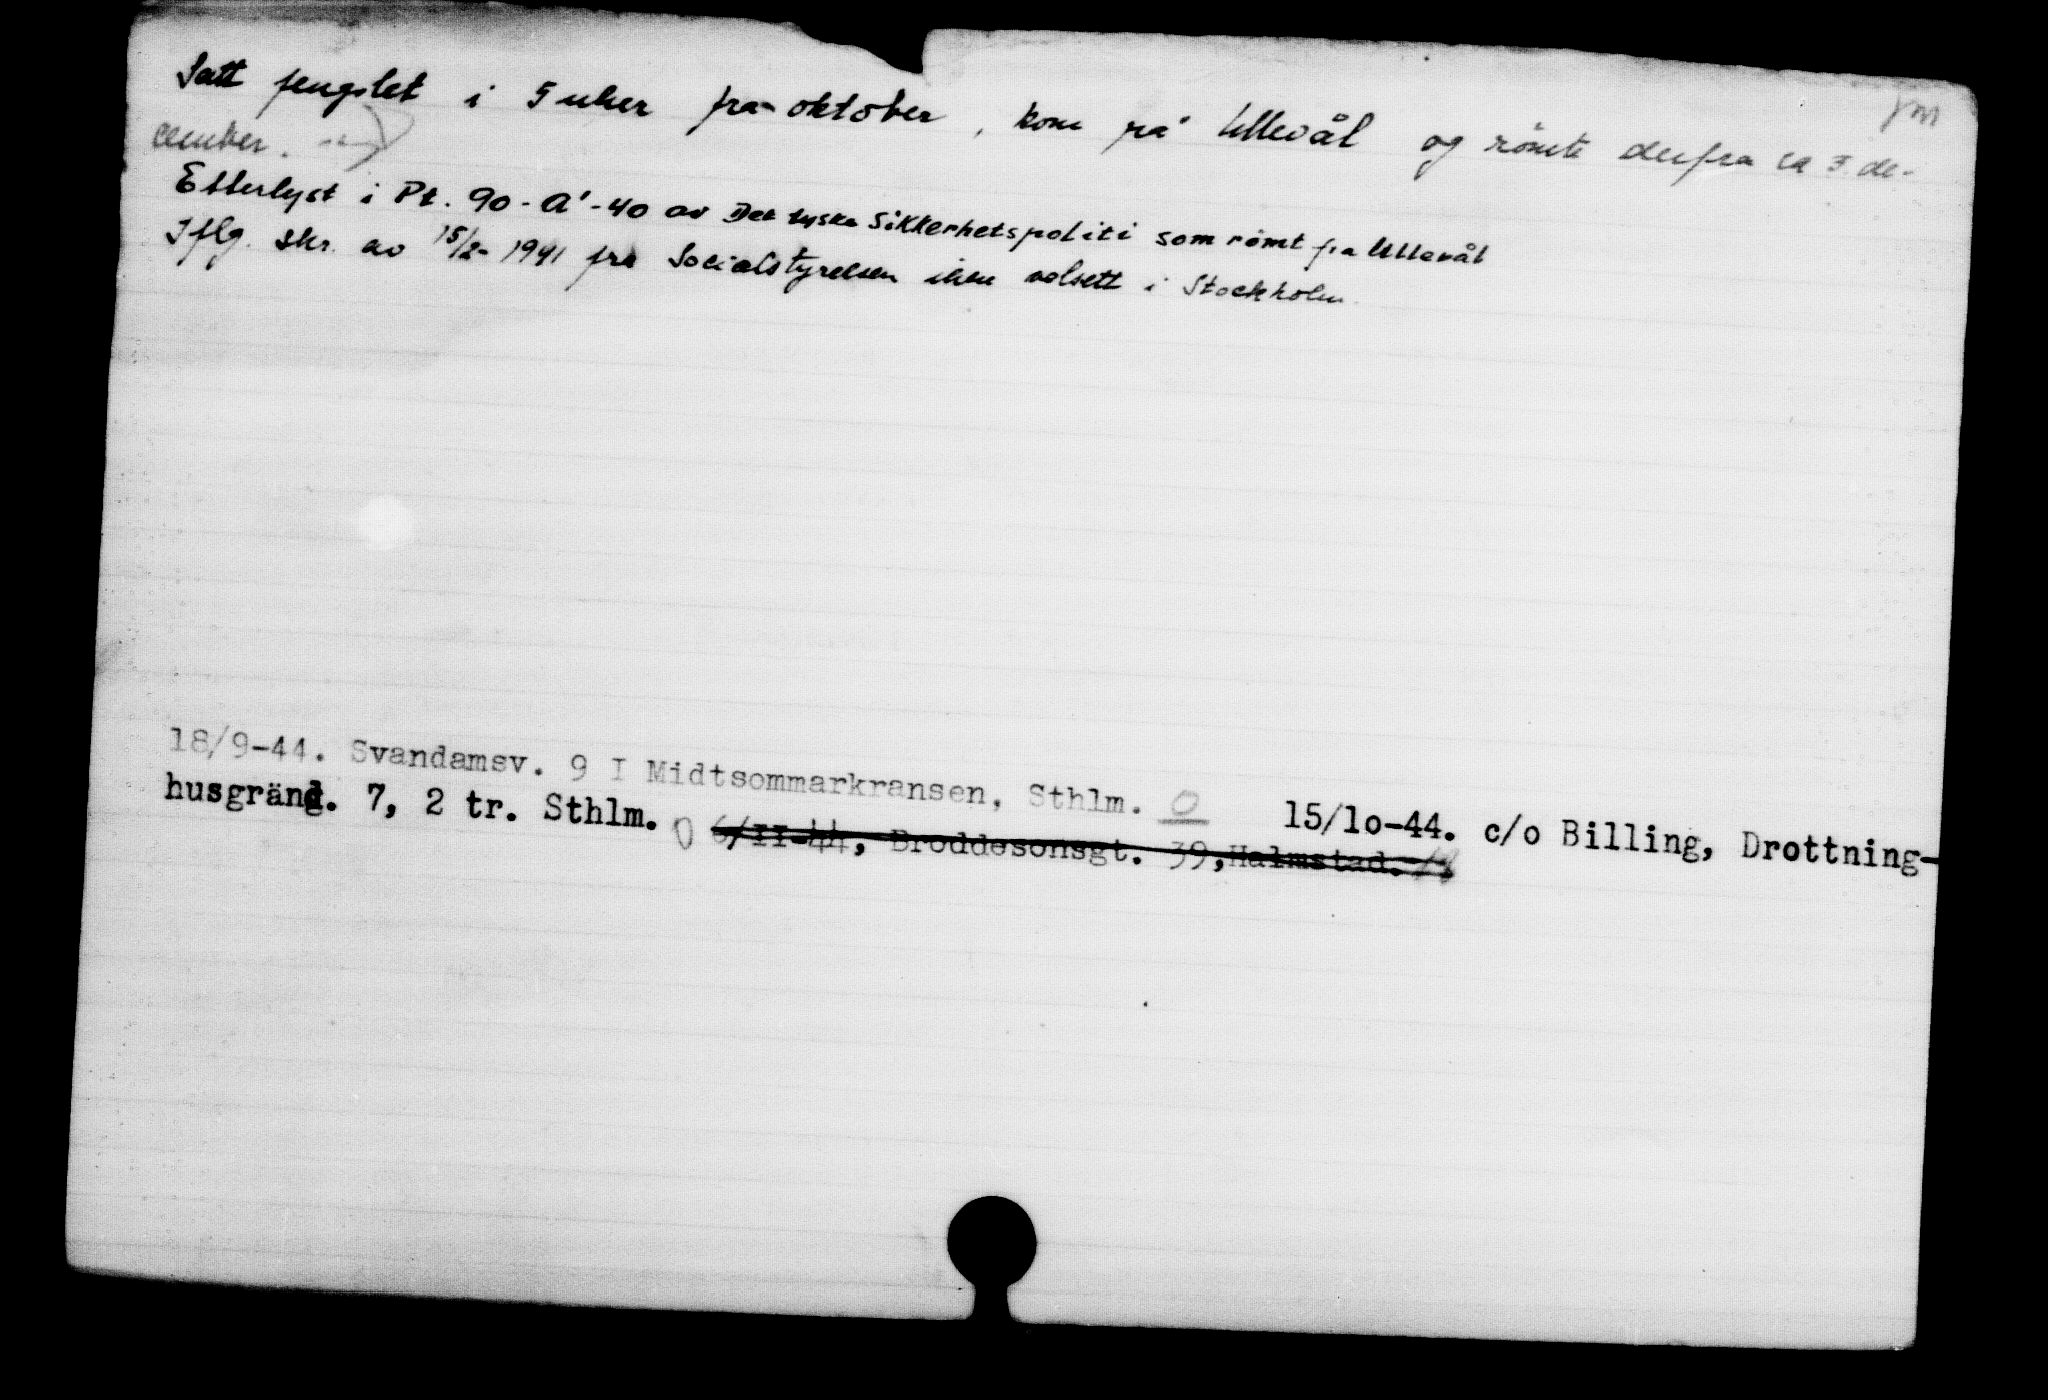 Satt fengslet i 5 uker fra oktober, kom på Ullevål og römte derfra ca 3. de-
cember.
Etterlyst i Pt. 90-A'-40 av Det tyske Sikkerhetspoliti som römt fra Ullevål
Iflg. skr. av 15/2-1941 fra Socialstyrelsen ikke velsett i Stockholm.
18/9-44. Svandamsv. 9 I Midtsommarkransen, Sthlm. O 15/lo-44. c/o Billing, Drottning-
husgränd. 7, 2 tr. Sthlm. O 6/II-44, Broddesonsgt. 39,Halmstad.